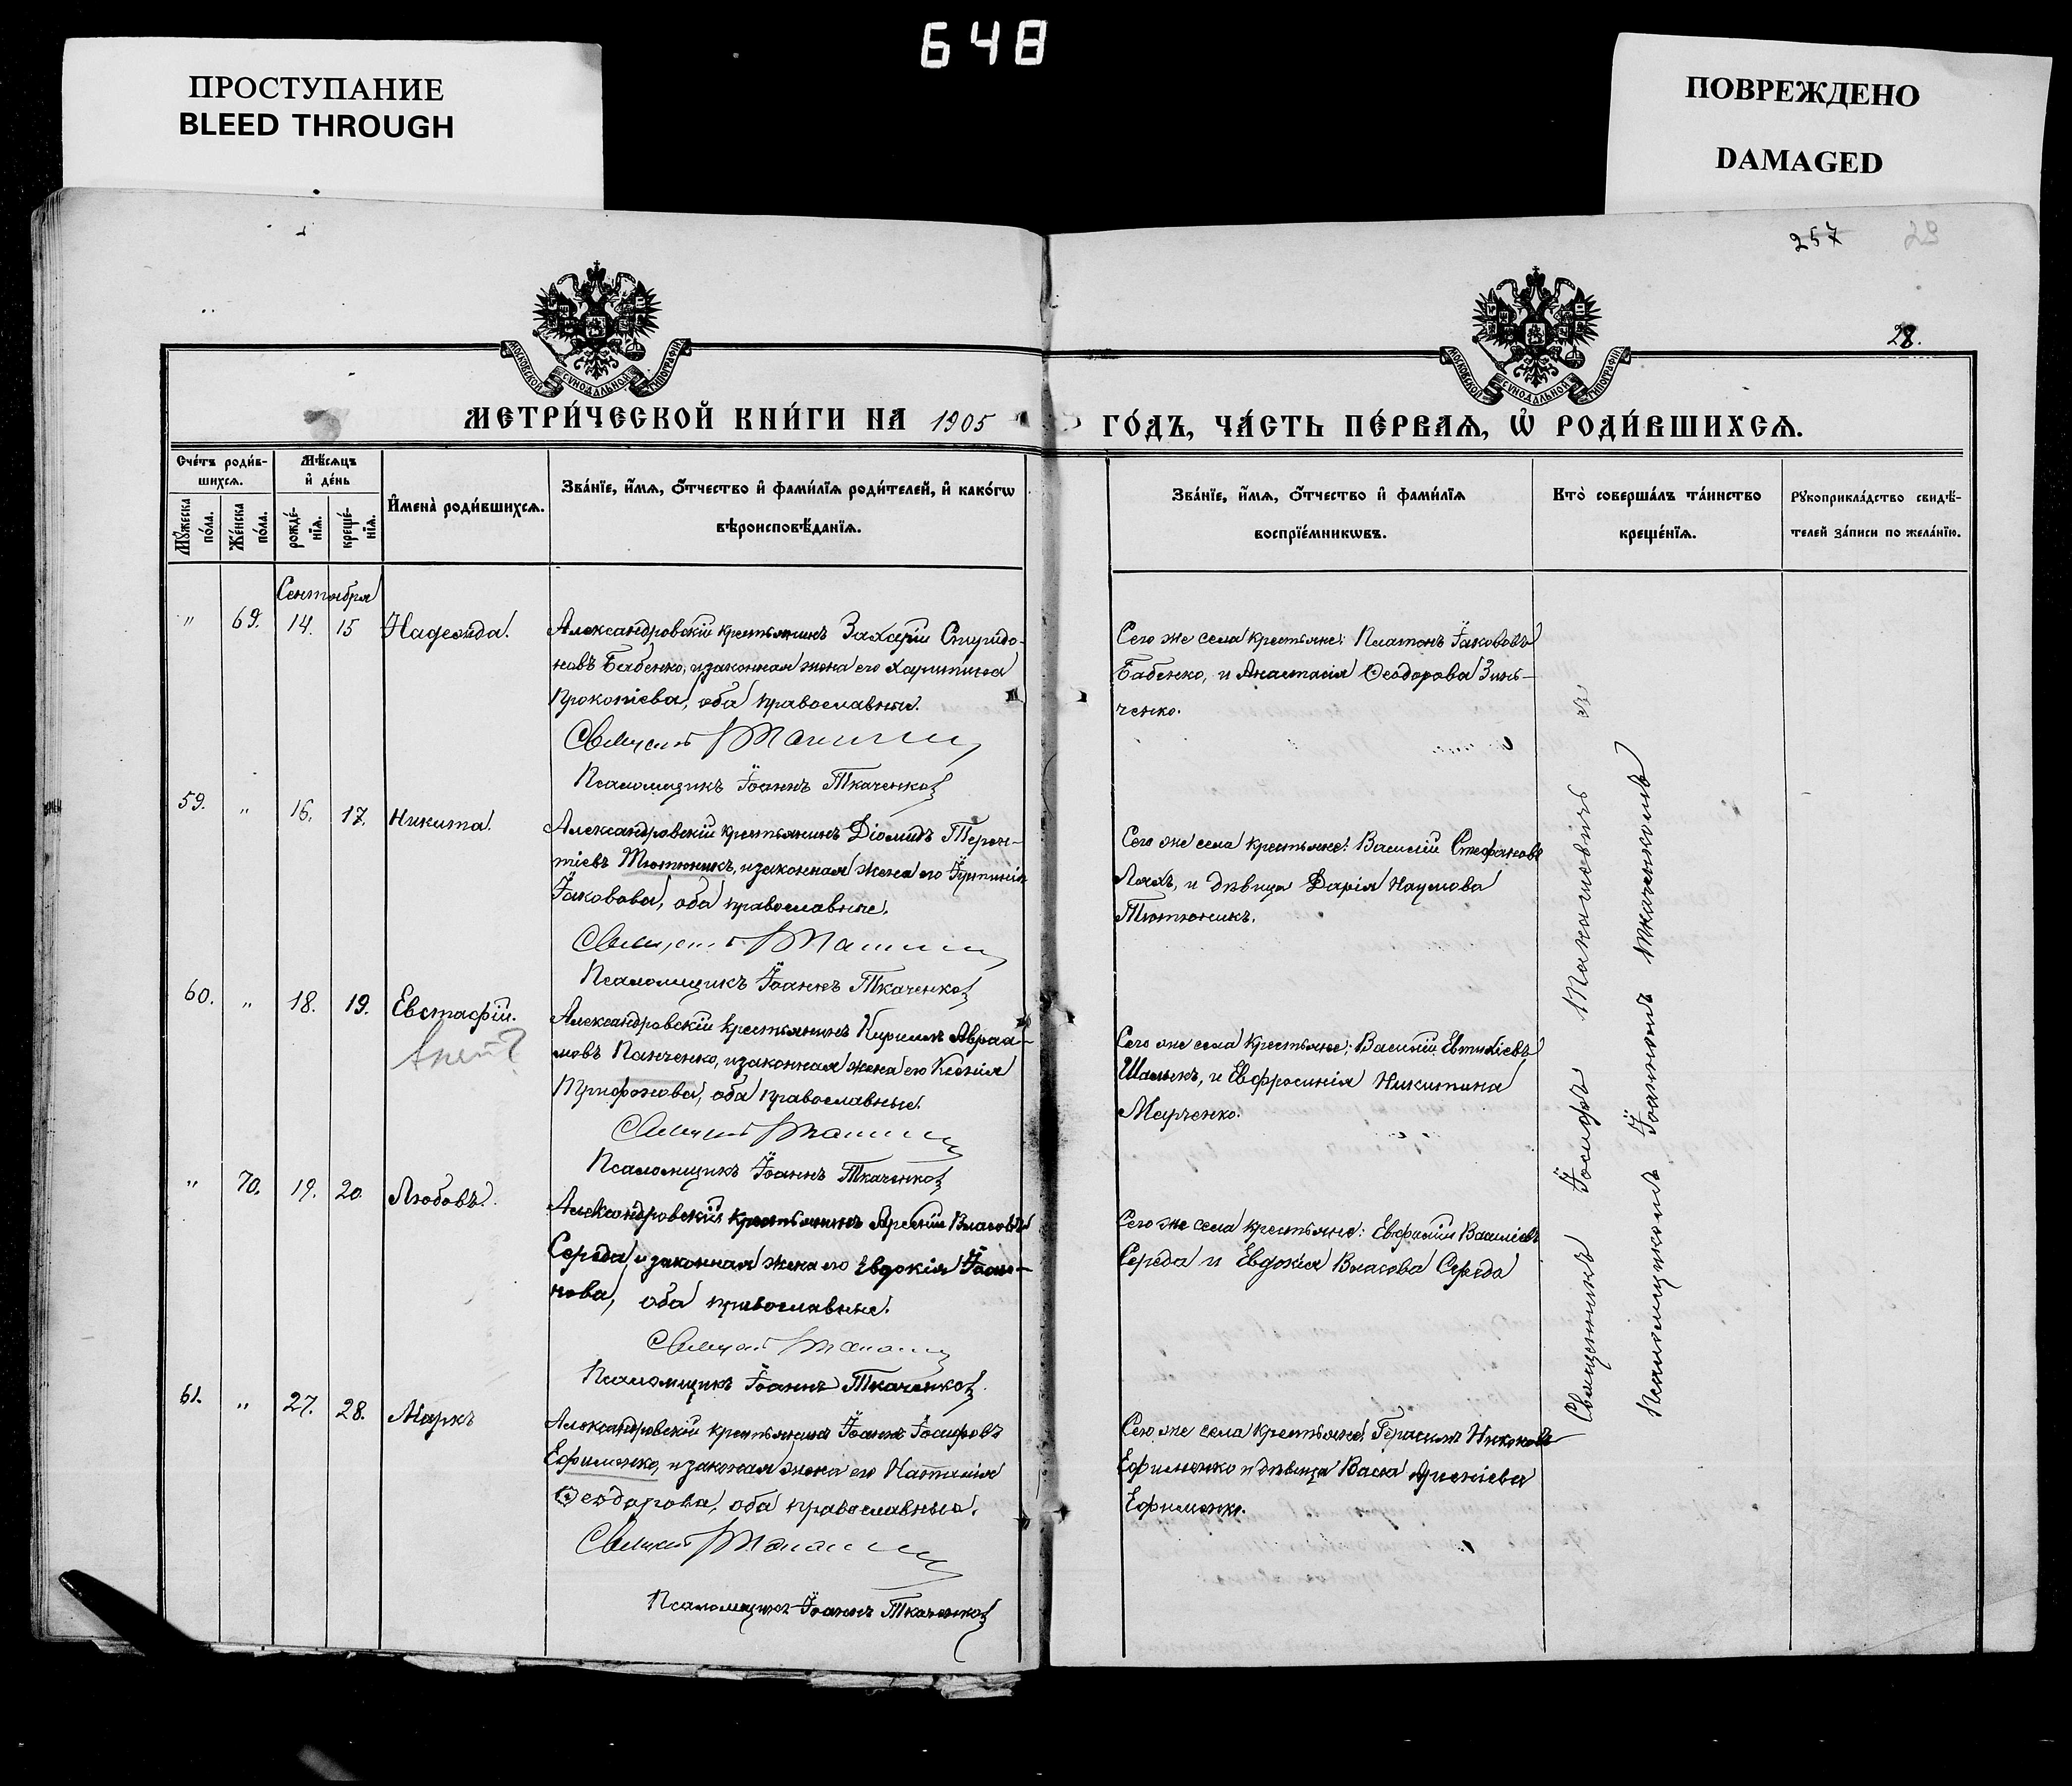 648
ПРОСТУПАНИЕ
BLEED THROUGH
ПОВРЕЖДЕНО
DAMAGED
257
29
28.
МОСКОВСКОЙ СУНОДАЛЬНОЙ ТИПОГРАФІИ
МОСКОВСКОЙ СУНОДАЛЬНОЙ ТИПОГРАФІИ
МЕТРИ́ЧЕСКОЙ КНИ́ГИ НА 1905
ГО́ДЪ, ЧА́СТЬ ПЕ́РВАѦ, Ѡ҆ РОДИ́ВШИХСѦ.
Сче́тъ роди́в-
шихсѧ.
Мѣ́сѧцъ
и҆ де́нь
Мꙋ́жеска
по́ла.
Же́нска
по́ла.
рожде́-
нїѧ.
креще́-
нїѧ.
И҆мена̀ роди́вшихсѧ.
Зва́нїе, и҆́мѧ, ѻ҆́тчество и҆ фами́лїѧ роди́телей, и҆ како́гѡ
вѣроисповѣ́данїѧ.
Зва́нїе, и҆́мѧ, ѻ҆́тчество и҆ фами́лїѧ
воспрїе́мникѡвъ.
Кто̀ соверша́лъ та́инство
креще́нїѧ.
Рꙋкоприкла́дство свидѣ́-
телей за́писи по жела́нїю.
Сентября
" 69. 14. 15 Надежда.
Александровскій крестьянинъ Захарій Спиридо-
новъ Бабенко, и законная жена его Харитина
Прокопіева, оба православные.
Священникъ
Псаломщикъ Іоаннъ Ткаченко
Сего же села крестьяне: Платонъ Іакововъ
Бабенко, и Анастасія Ѳеодорова Зинь-
ченко.
59. " 16. 17. Никита.
Александровскій крестьянинъ Діомидъ Терен-
тіевъ Тютюникъ, и законная жена его Іустинія
Іаковова, оба православные.
Священникъ
Псаломщикъ Іоаннъ Ткаченко
Сего же села крестьяне: Василій Стефановъ
Ляхъ, и дѣвица Дарія Наумова
Тютюникъ.
60. " 18. 19. Евстафій.
Александровскій крестьянинъ Кириллъ Авраа-
мовъ Панченко, и законная жена его Ксенія
Трифонова, оба православные.
Священникъ
Псаломщикъ Іоаннъ Ткаченко
Сего же села крестьяне: Василій Евтихіевъ
и Евфросинія Никитина
Марченко.
" 70. 19. 20. Любовь.
Александровскій крестьянинъ Арсеній Власовъ
Середа, и законная жена его Евдокія Іоан-
нова, оба православные.
Священникъ
Псаломщикъ Іоаннъ Ткаченко
Сего же села крестьяне: Евфимій Василіевъ
Середа и Евдокія Власова Середа
61. " 27. 28. Маркъ
Александровскій крестьянинъ Іоаннъ Іосифовъ
Ефименко, и законная жена его Наталія
Ѳеодорова, оба православные.
Священникъ
Псаломщикъ Іоаннъ Ткаченко
Сего же села крестьяне: Герасимъ Никоновъ
Ефименко и дѣвица Васса Арсеніева
Ефименко.
Священникъ Іосифъ Манашевичъ съ
Псаломщикомъ Іоанномъ Ткаченкомъ